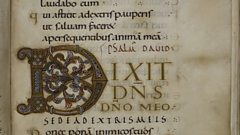 laudabo eum
quia astitit adextris pauperis
ut saluam faceret
apersequentibus animā meā
psalm dauid
DIXIT
DN̄S
DN̄O MEO
SEDEADEXTRISMEIS